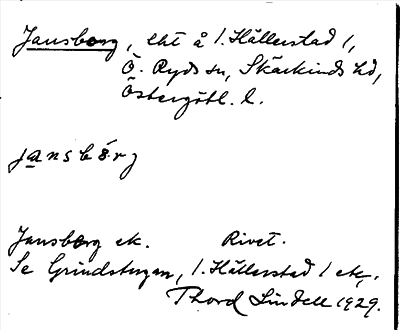 Jansborg, lht å 1. Hällerstad 1,
Ö. Ryds sn, Skärkinds hd,
Östergötl. l.
jansbårj
Jansborg ek. Rivet.
Se Grindstugan, 1. Hällerstad 1 etc.
Thord Lindell 1929.